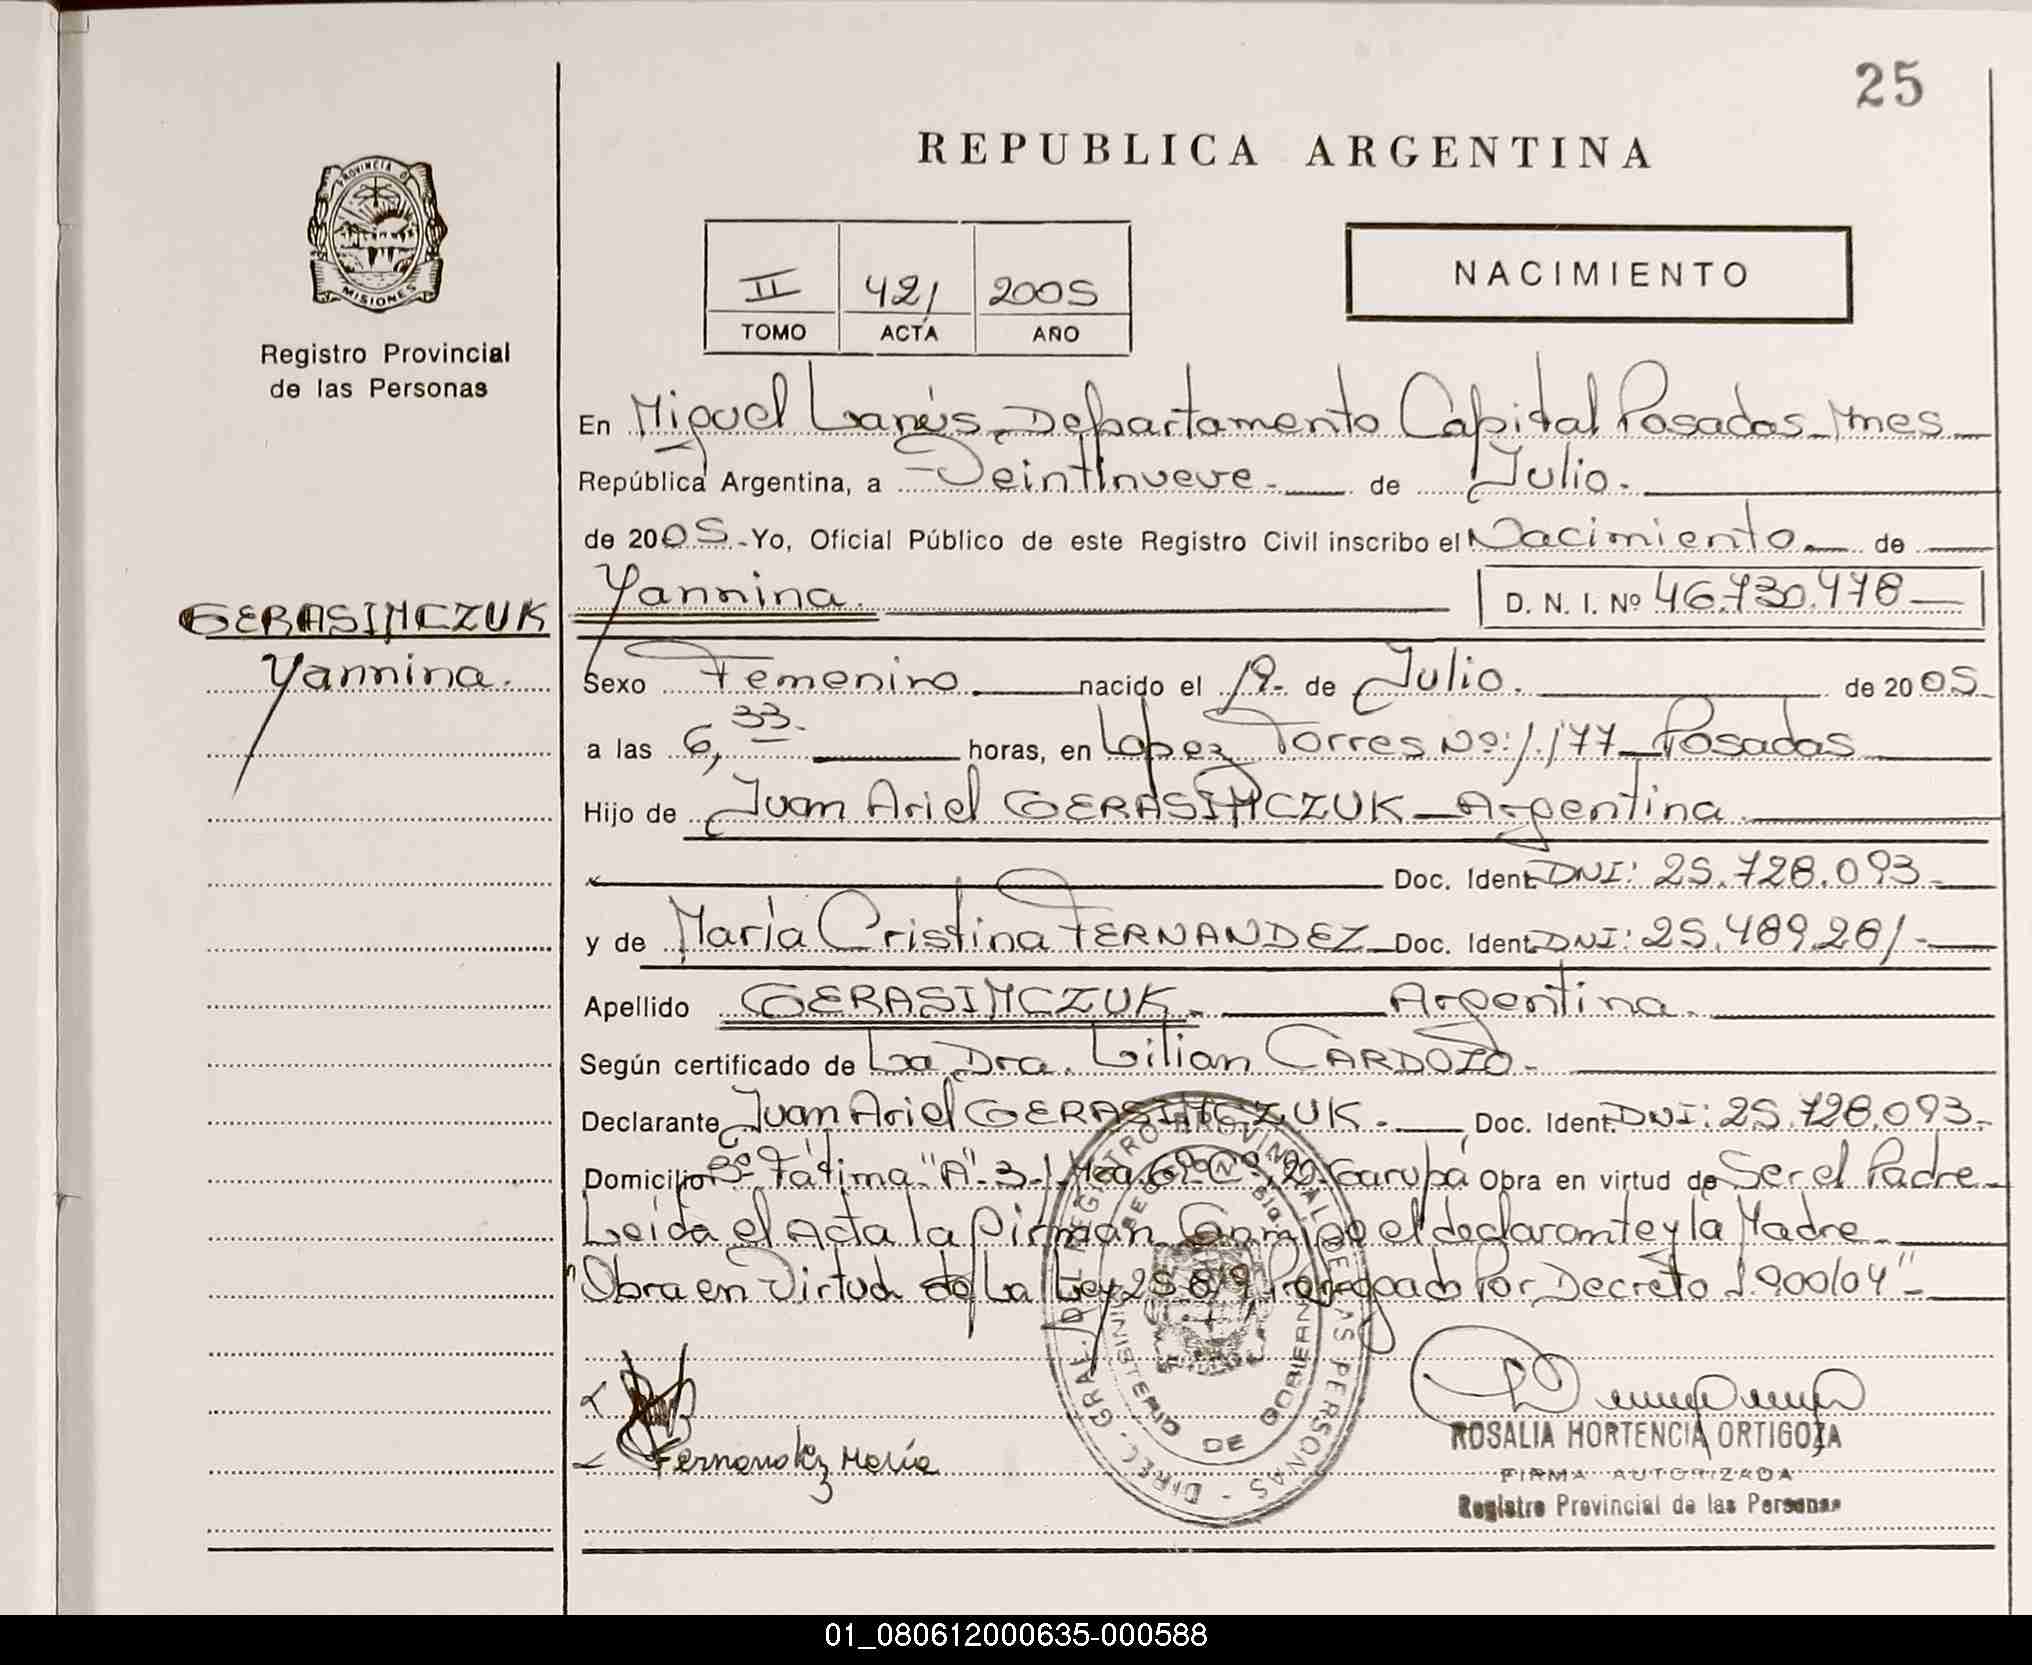 25
REPUBLICA ARGENTINA
PROVINCIA DE
MISIONES
Registro Provincial
de las Personas
II 421 2005
TOMO ACTA AÑO
NACIMIENTO
En Miguel Lanús, Departamento Capital Posadas Mnes
República Argentina, a Veintinueve - de Julio.
de 2005 - Yo, Oficial Público de este Registro Civil inscribo el Nacimiento de
Yannina. D. N. I. Nº 46.730.478
GERASIMCZUK
Yannina.
Sexo Femenino nacido el 19 de Julio. de 2005
a las 6,33- horas, en Lopez Torres Nº: 1.177 Posadas
Hijo de Juan Ariel GERASIMCZUK - Argentina
Doc. Ident. DNI: 25.728.093
y de María Cristina FERNANDEZ Doc. Ident. DNI: 25.489.281-
Apellido GERASIMCZUK. Argentina.
Según certificado de La Dra. Lilian CARDOZO-
Declarante Juan Ariel GERASIMCZUK - Doc. Ident. DNI: 25.728.093-
Domicilio Bº Fátima "A" Garupá Obra en virtud de Ser el Padre
Leída el Acta la Firman Conmigo el declarante y la Madre
"Obra en Virtud de La Ley 25819 Prorrogado Por Decreto 1.900/04"-
Fernandez María
DIREC. GRAL. DEL REGISTRO PROVINCIAL DE LAS PERSONAS
MINISTERIO DE GOBIERNO
ROSALIA HORTENCIA ORTIGOZA
FIRMA AUTORIZADA
Registro Provincial de las Personas
01_080612000635-000588